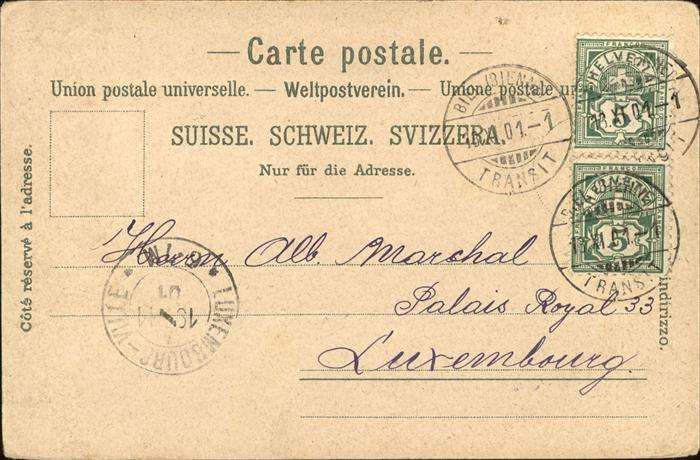 Carte postale.
Union postale universelle. — Weltpostverein. — Unione postale
SUISSE. SCHWEIZ. SVIZZERA.
Nur für die Adresse.
Côté réservé à l'adresse.
Herrn Alb. Marchal
Palais Royal 33
Luxembourg
indirizzo.
FRANCO
HELVETIA
5
FRANCO
5
TRANSIT
01-1
TRANSIT
TRANSIT
LUXEMBOURG-VILLE